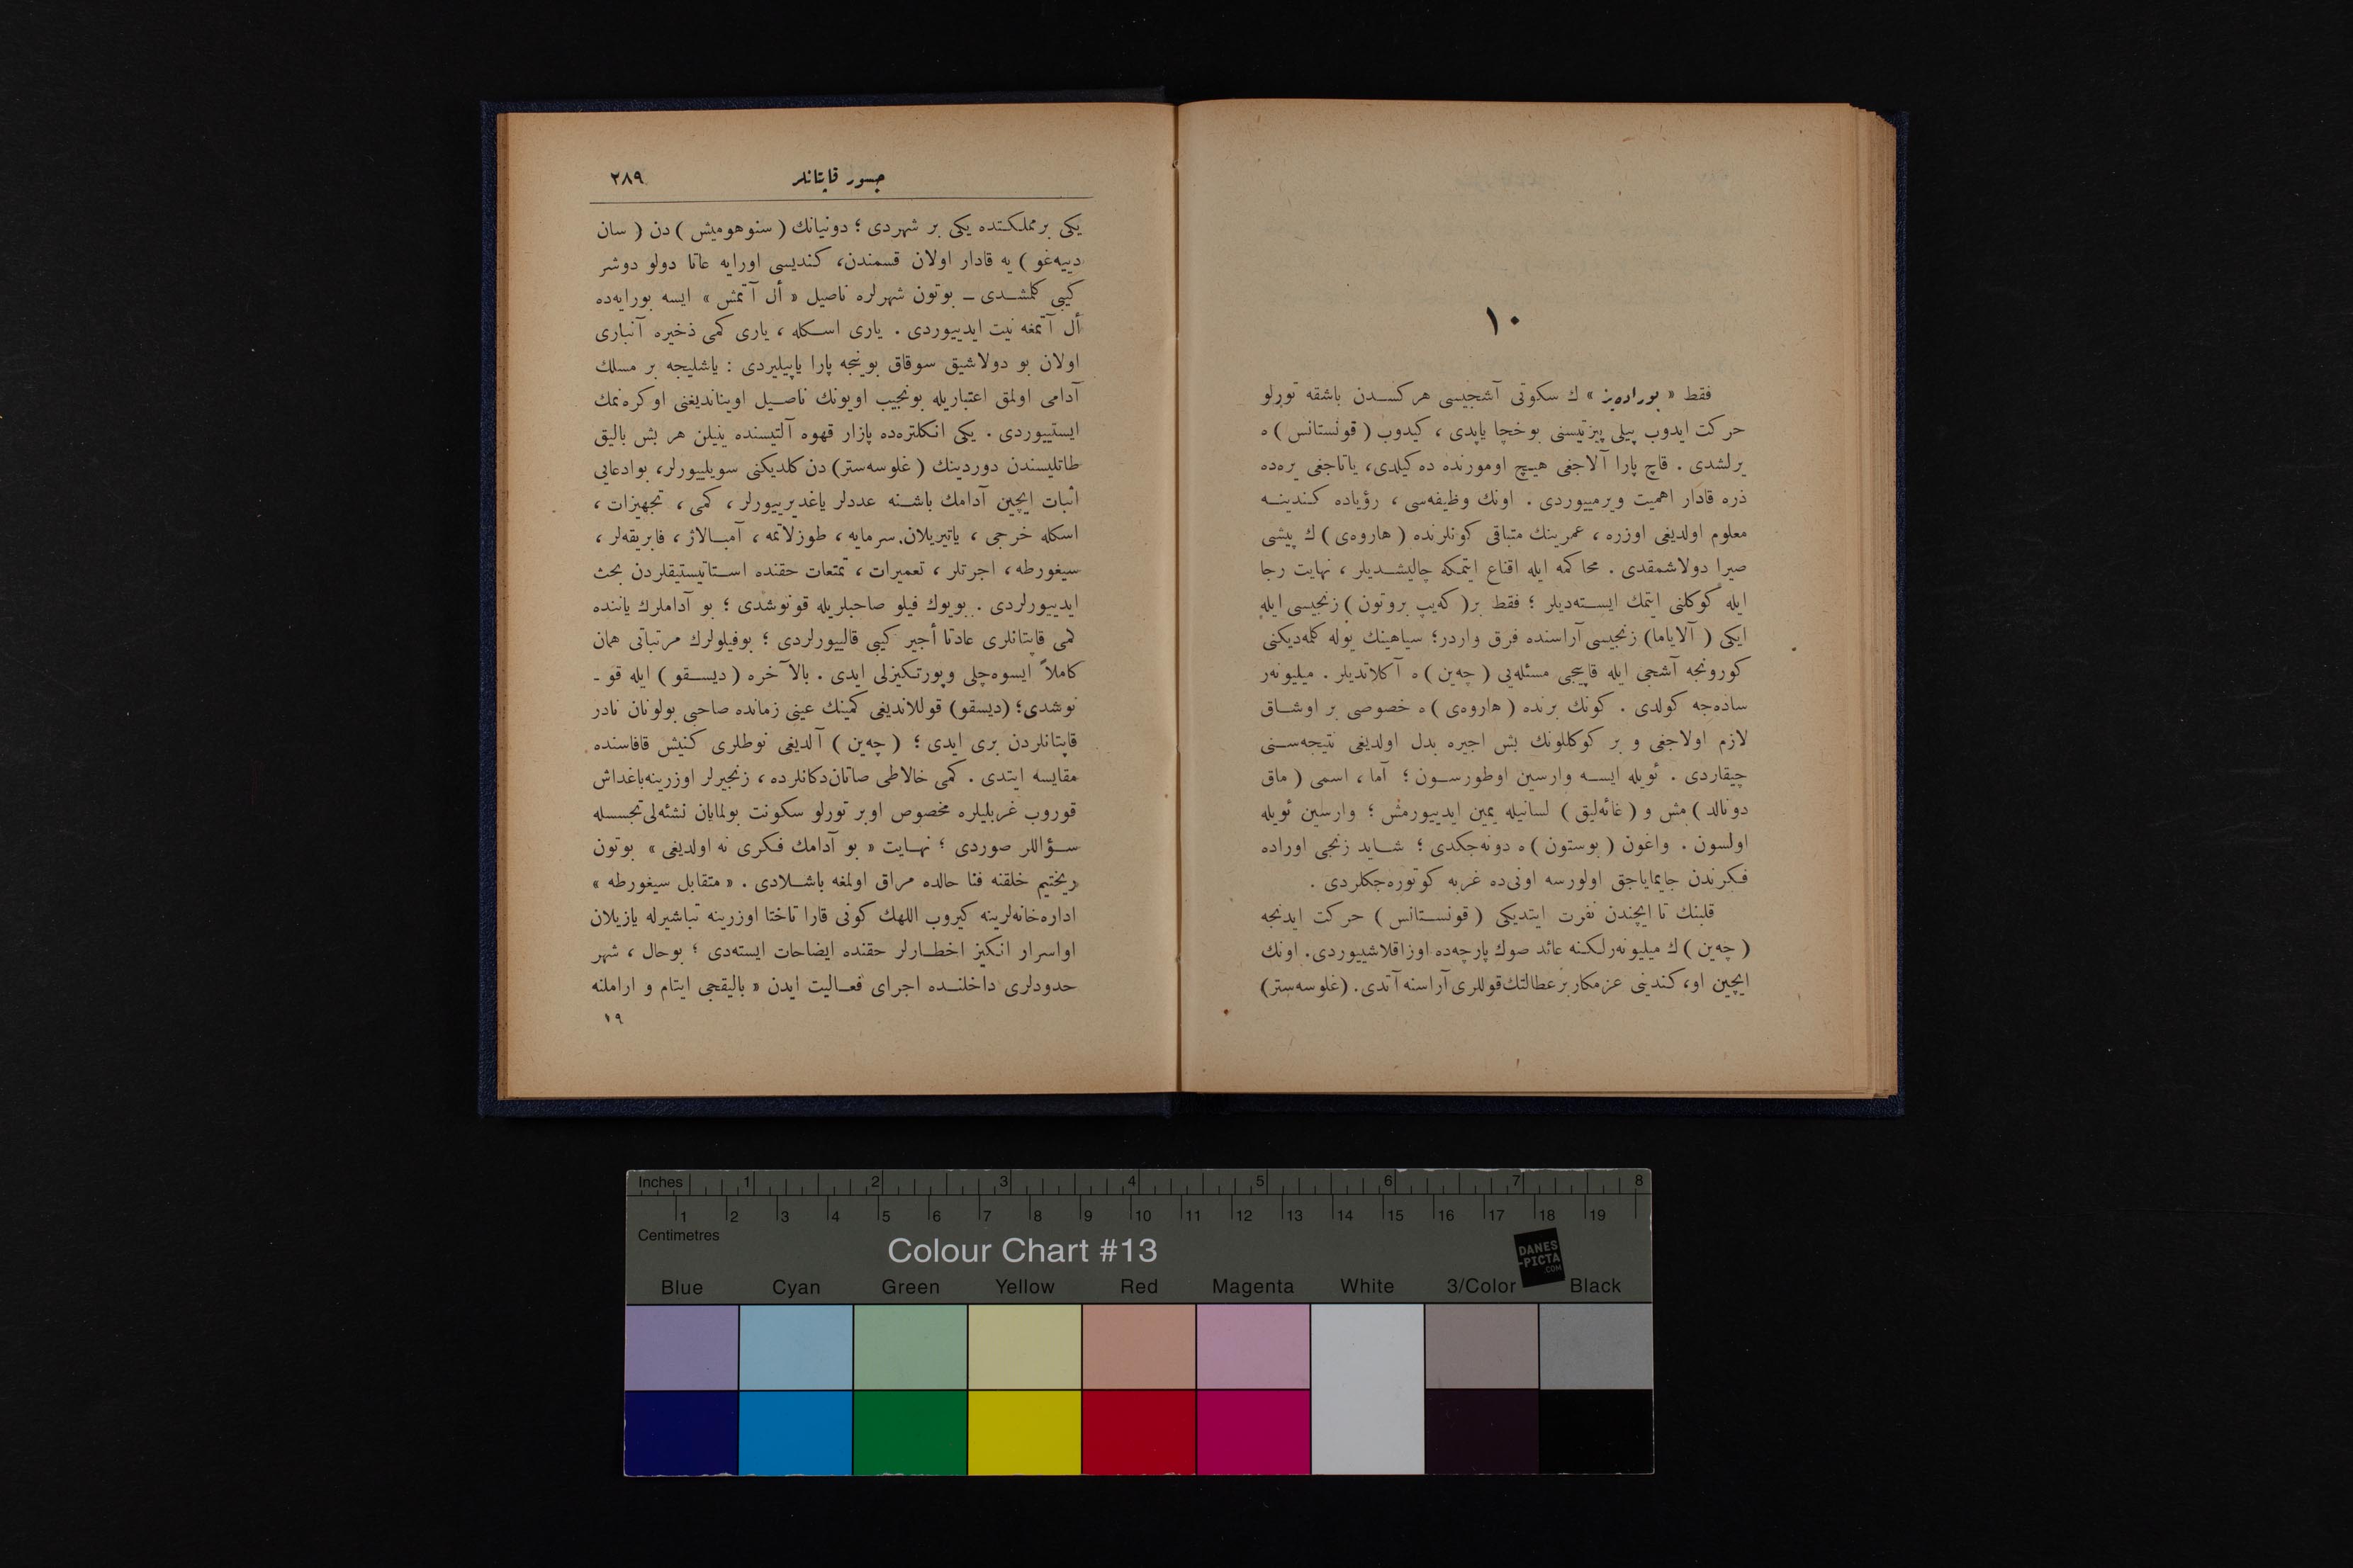 ١٠
فقط « بوراده‌یز » ك سكوتی آشجیسی هركسدن باشقه تورلو
حركت ایدوب پیلی پیرتیسنی بوخچا یاپدی ، كیدوب ( قونستانس ) ه
یرلشدی . قاچ پارا آلاجغی هیچ اومورنده ده كیلدی، یاتاجغی یره‌ده
ذره قادار اهمیت ویرمییوردی . اونك وظیفه‌سی ، رؤیاده كندینه
معلوم اولدیغی اوزره ، عمرینك متباقی كونلرنده ( هاروه‌ی ) ك پیشی
صیرا دولاشمقدی . محاكمه ایله اقناع ایتمكه چالیشدیلر ، نهایت رجا
ایله كوكلنی ایتمك ایسته‌دیلر ؛ فقط بر( كه‌یپ بروتون ) زنجیسی ایله
ایكی ( آلاباما) زنجیسی آراسنده فرق واردر؛ سیاهینك یوله كلمه‌دیكنی
كورونجه آشجی ایله قاپیجی مسئله‌یی ( چه‌ین ) ه آكلاتدیلر . میلیونه‌ر
ساده‌جه كولدی . كونك برنده ( هاروه‌ی ) ه خصوصی بر اوشاق
لازم اولاجغی و بر كوكللونك بش اجیره بدل اولدیغی نتیجه‌سنی
چیقاردی . ئویله ایسه وارسین اوطورسون ؛ آما ، اسمی ( ماق
دونالد ) مش و ( غائه‌لیق ) لسانیله یمین ایدییورمش ؛ وارسین ئویله
اولسون . واغون ( بوستون ) ه دونه‌جكدی ؛ شاید زنجی اوراده
فكرندن جایمایاجق اولورسه اونی‌ده غربه كوتوره‌جكلردی .
قلبنك تا ایچندن نفرت ایتدیكی ( قونستانس ) حركت ایدنجه
( چه‌ین ) ك میلیونه‌رلكنه عائد صوك پارچه‌ده اوزاقلاشییوردی. اونك
ایچین او، كندینی عزمكار بر عطالتك قوللری آراسنه آتدی. (غلوسه‌ستر)
جسور قاپتانلر ٢٨٩
یكی برمملكتده یكی بر شهردی ؛ دونیانك ( سنوهومیش ) دن ( سان
دییه‌غو ) یه قادار اولان قسمندن، كندیسی اورایه عاتا دولو دوشر
كیبی كلمشدی ــ بوتون شهرلره ناصیل « أل آتمش » ایسه بورایه‌ده
أل آتمغه نیت ایدییوردی . یاری اسكله ، یاری كمی ذخیره آنباری
اولان بو دولاشیق سوقاق بوینجه پارا یاپیلیردی : یاشلیجه بر مسلك
آدامی اولمق اعتباریله بونجیب اویونك ناصیل اویناندیغنی اوكره‌نمك
ایستییوردی . یكی انكلتره‌ده پازار قهوه آلتیسنده ینیلن هر بش بالیق
طاتلیسندن دوردینك ( غلوسه‌ستر) دن كلدیكنی سویلییورلر، بوادعایی
اثبات ایچین آدامك باشنه عددلر یاغدیرییورلر ، كمی ، تجهیزات ،
اسكله خرجی ، یاتیریلان سرمایه ، طوزلاتمه ، آمبالاژ ، فابریقه‌لر ،
سیغورطه ، اجرتلر ، تعمیرات ، تمتعات حقنده استاتیستیقلردن بحث
ایدییورلردی . بویوك فیلو صاحبلریله قونوشدی ؛ بو آداملرك یاننده
كمی قاپتانلری عادتا أجیر كیبی قالییورلردی ؛ بوفیلولرك مرتباتی همان
كاملاً ایسوه‌چلی وپورتكیزلی ایدی . بالآخره ( دیسقو ) ایله قو ـ
نوشدی؛ (دیسقو) قوللاندیغی كمینك عینی زمانده صاحبی بولونان نادر
قاپتانلردن بری ایدی ؛ ( چه‌ین ) آلدیغی نوطلری كنیش قافاسنده
مقایسه ایتدی . كمی خالاطی صاتان دكانلرده ، زنجیرلر اوزرینه باغداش
قوروب غربلیلره مخصوص اوبر تورلو سكونت بولمایان نشئه‌لی تجسسله
سؤاللر صوردی ؛ نهایت « بو آدامك فكری نه اولدیغی » بوتون
ریختیم خلقنه فنا حالده مراق اولمغه باشلادی . « متقابل سیغورطه »
اداره‌خانه‌لرینه كیروب اللهك كونی قارا تاختا اوزرینه تباشیرله یازیلان
اواسرار انكیز اخطارلر حقنده ایضاحات ایسته‌دی ؛ بوحال ، شهر
حدودلری داخلنده اجرای فعالیت ایدن « بالیقجی ایتام و ارامله
١٩
Inches 1 2 3 4 5 6 7 8
1 2 3 4 5 6 7 8 9 10 11 12 13 14 15 16 17 18 19
Centimetres
Colour Chart #13
DANES
-PICTA
.COM
Blue Cyan Green Yellow Red Magenta White 3/Color Black